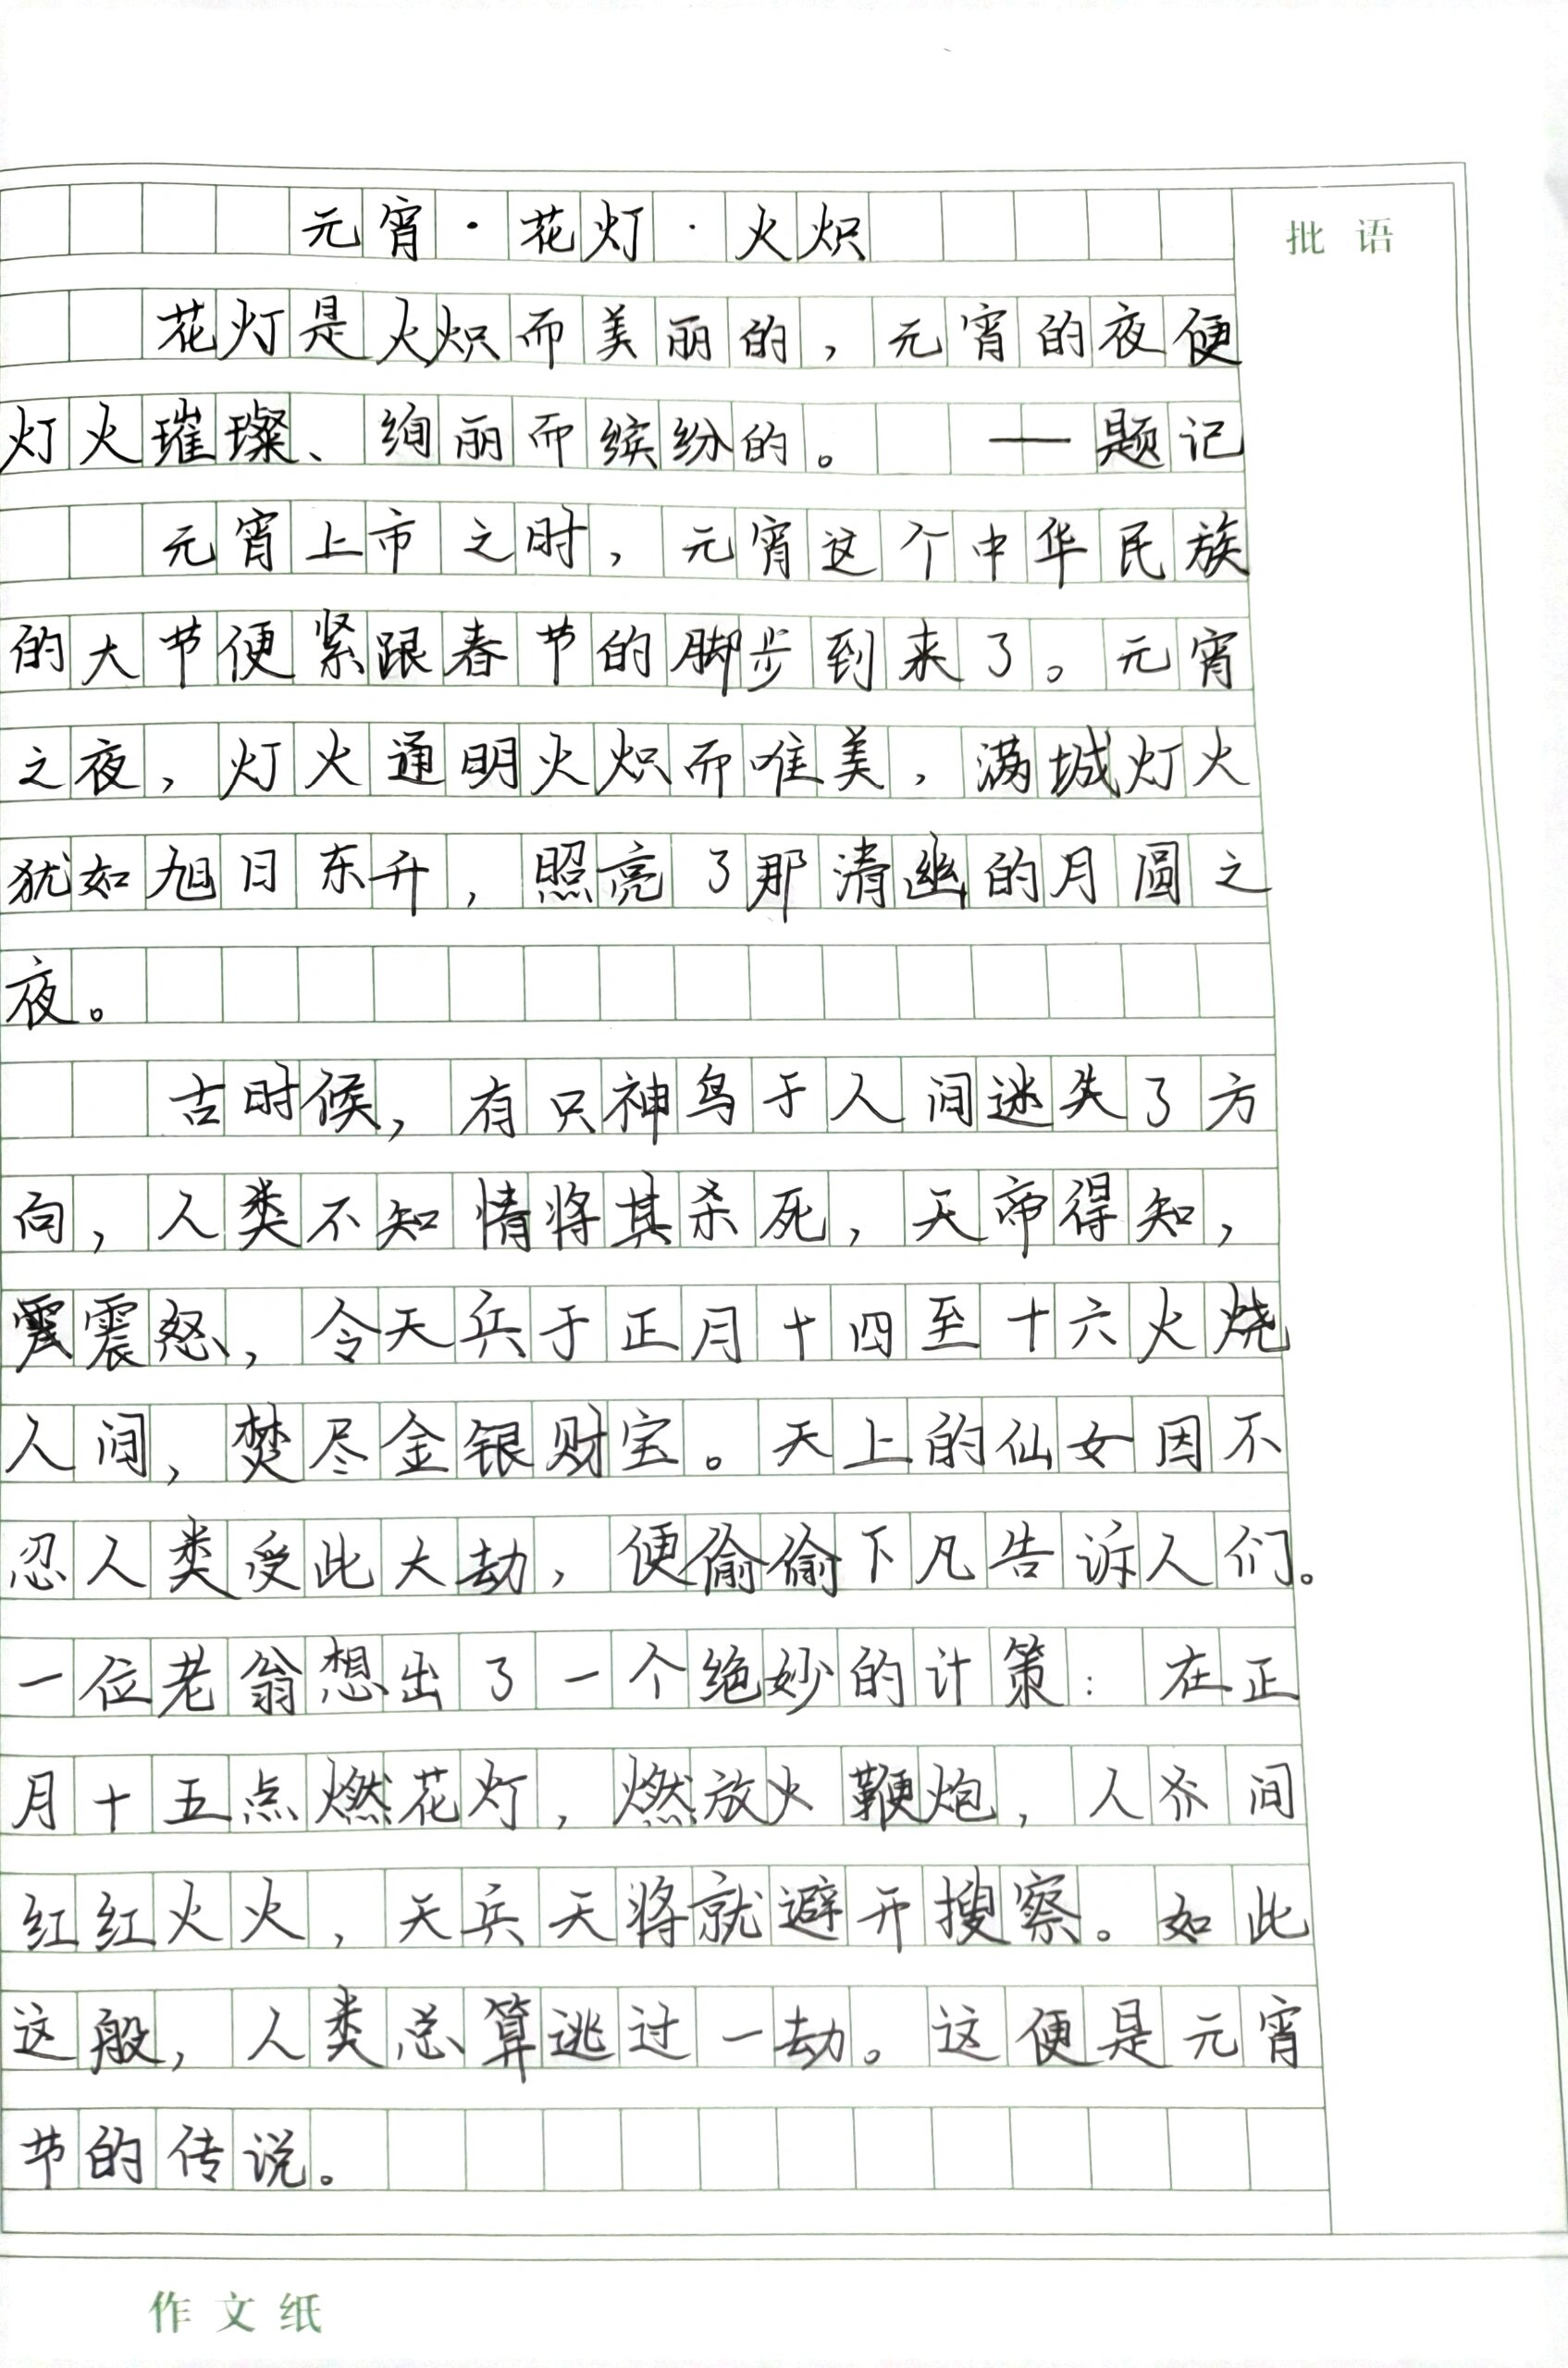 元宵·花灯·火炽
批语
花灯是火炽而美丽的，元宵的夜便
灯火璀璨、绚丽而缤纷的。——题记
元宵上市之时，元宵这个中华民族
的大节便紧跟春节的脚步到来了。元宵
之夜，灯火通明火炽而唯美，满城灯火
犹如旭日东升，照亮了那清幽的月圆之
夜。
古时候，有只神鸟于人间迷失了方
向，人类不知情将其杀死，天帝得知，
震怒，令天兵于正月十四至十六火烧
人间，焚尽金银财宝。天上的仙女因不
忍人类受此大劫，便偷偷下凡告诉人们。
一位老翁想出了一个绝妙的计策：在正
月十五点燃花灯，燃放火鞭炮，人间
红红火火，天兵天将就避开搜察。如此
这般，人类总算逃过一劫。这便是元宵
节的传说。
作文纸